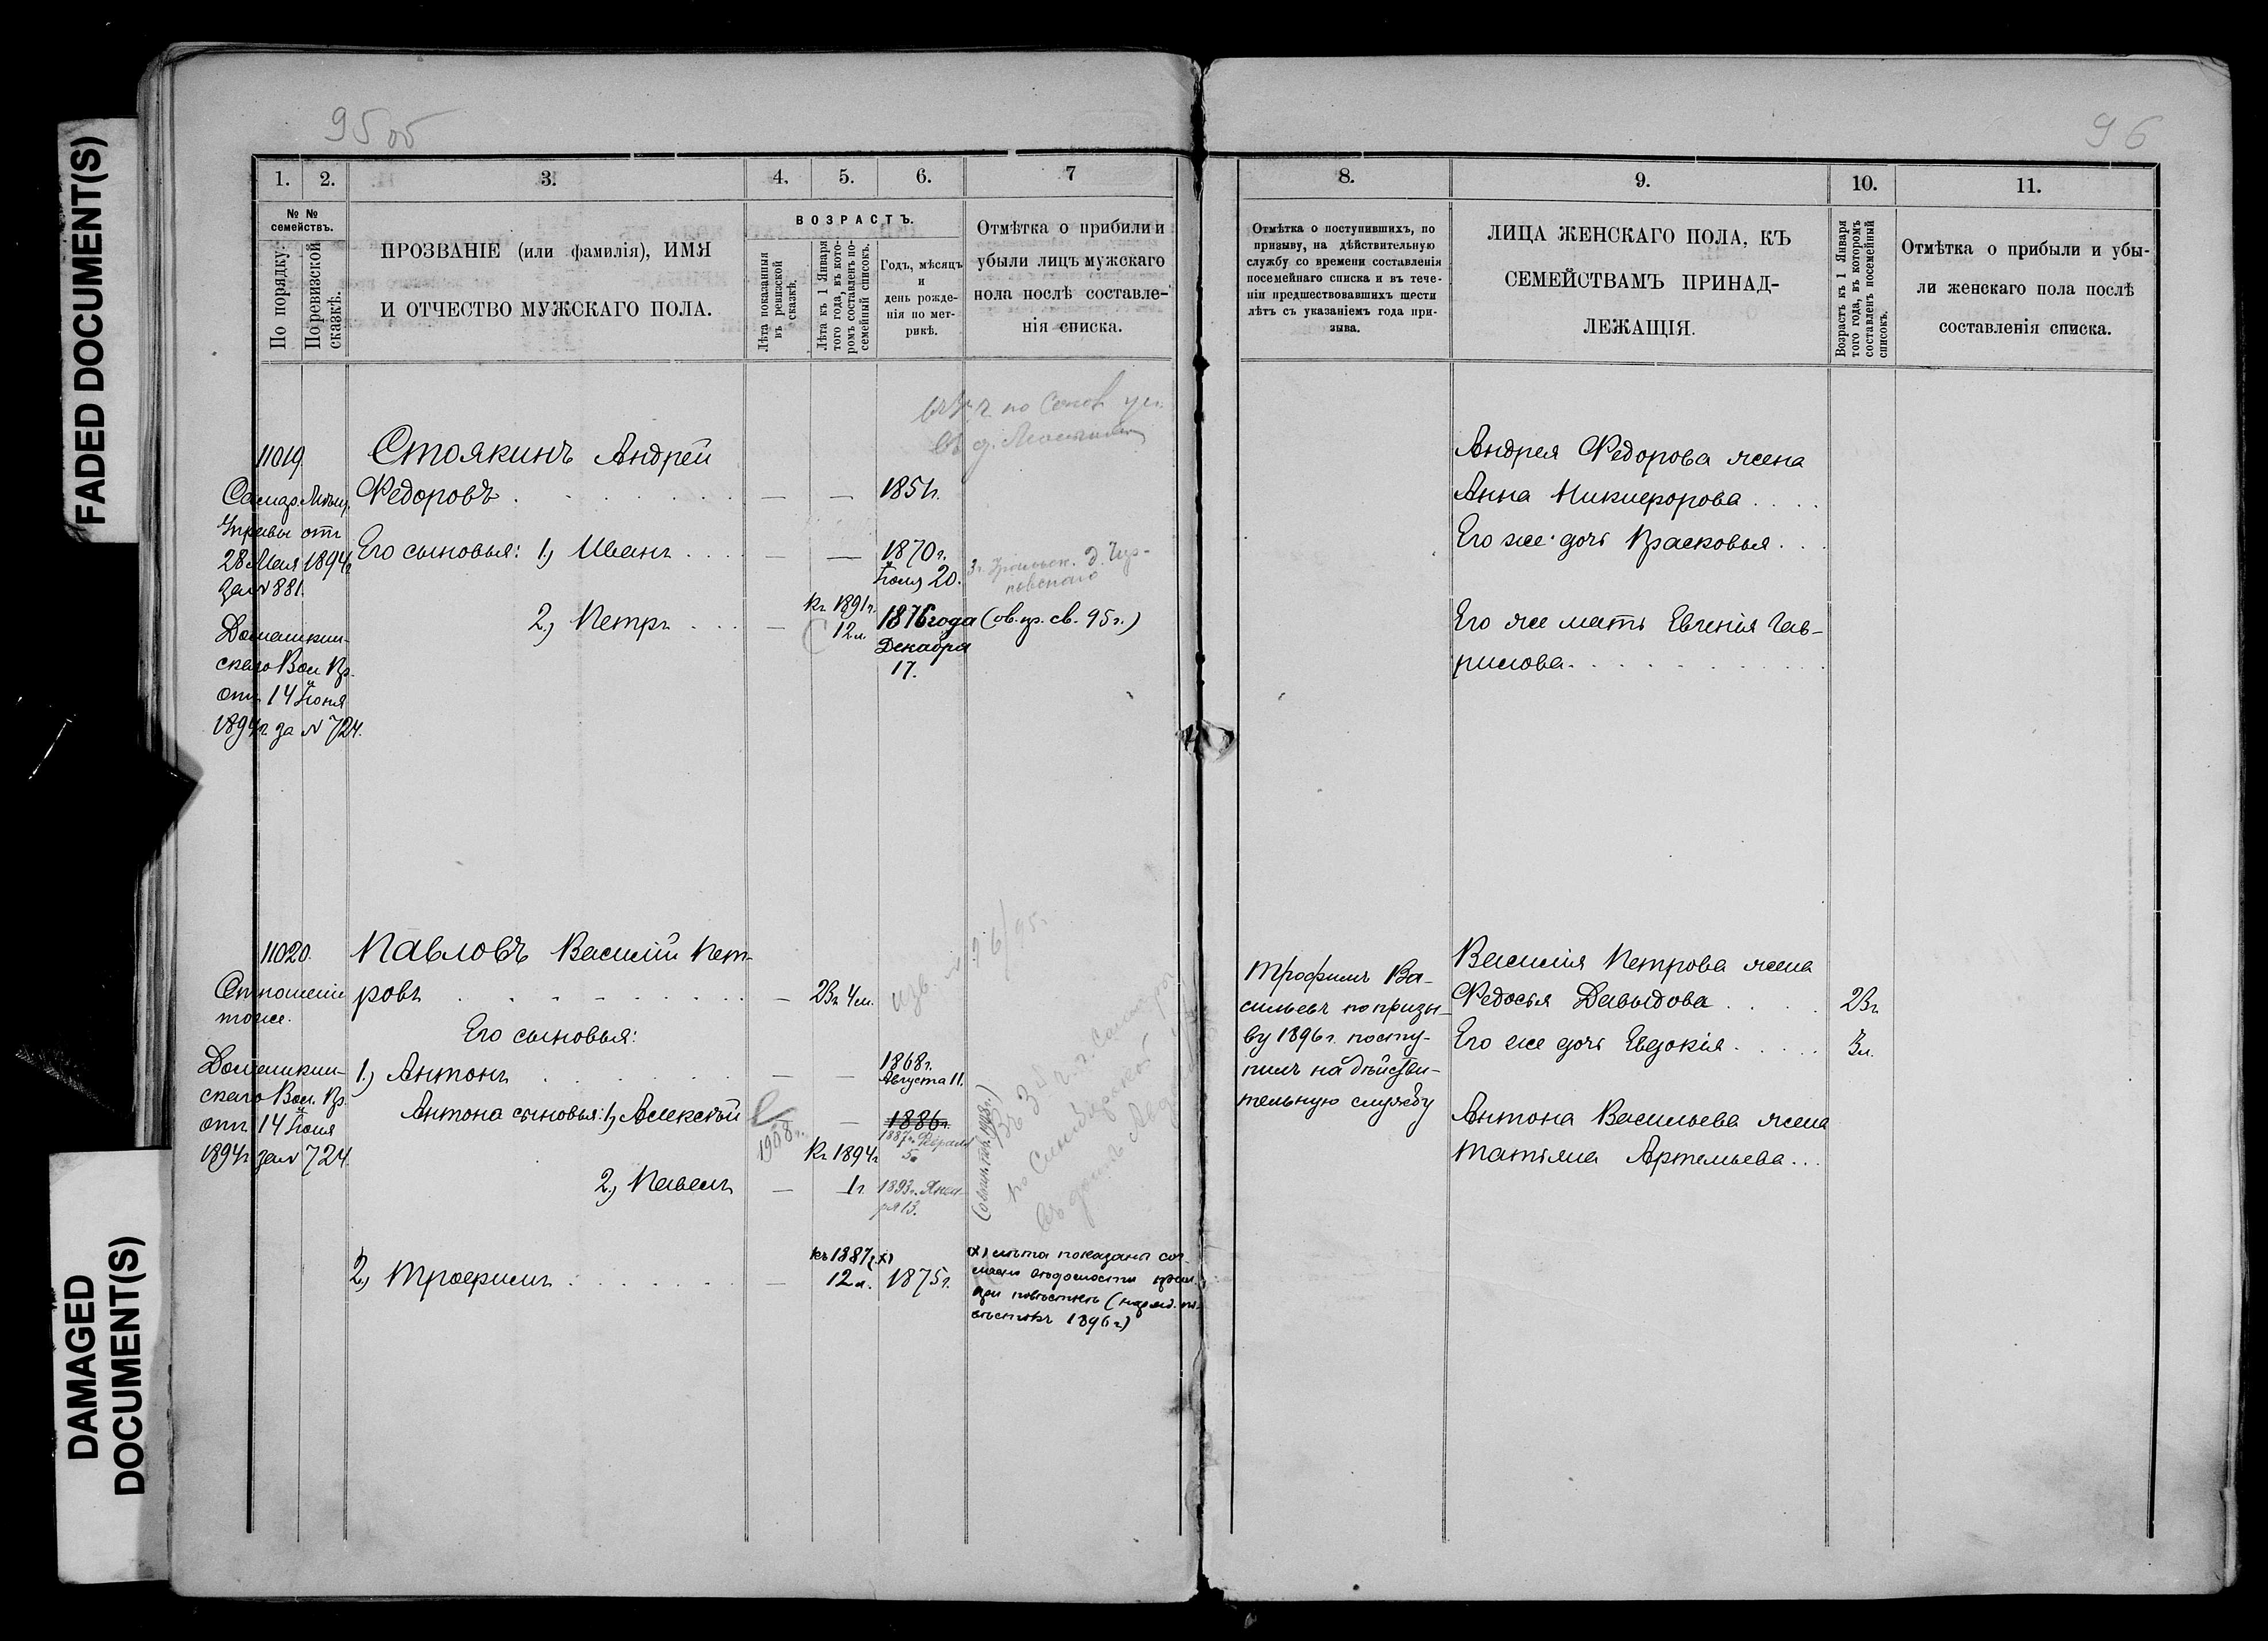 FADED DOCUMENT(S)
DAMAGED
DOCUMENT(S)
95 об
1. 2. 3. 4. 5. 6. 7
№ №
семействъ.
По порядку.
По ревизской
сказкѣ.
ПРОЗВАНІЕ (или фамилія), ИМЯ
И ОТЧЕСТВО МУЖСКАГО ПОЛА.
ВОЗРАСТЪ.
Лѣта показанныя
въ ревизской
сказкѣ.
Лѣта къ 1 Января
того года, въ кото-
ромъ составленъ по-
семейный списокъ.
Годъ, мѣсяцъ
и
день рожде-
нія по мет-
рикѣ.
Отмѣтка о прибыли и
убыли лицъ мужскаго
пола послѣ составле-
нія списка.
11019.
Самар. Мѣщ.
Управы отъ
28 Мая 1894г.
за № 881.
Домашкин-
скаго Вол. Пр.
отъ 14 Іюня
1894г. за № 724.
Стоякинъ Андрей
Федоровъ . . . . — — 1851г.
Его сыновья: 1, Иванъ . . . — — 1870г.
Іюля 20.
2, Петръ . . . — къ 1891г.
12л. 1876 года
Декабря
17.
(ов. пр. св. 95 г.)
11020.
Отношеніе
тоже.
Домашкин-
скаго Вол. Пр.
отъ 14 Іюня
1894г за № 724.
Павловъ Василій Пет-
ровъ . . . . . . . — 23г. 4м.
Его сыновья:
1, Антонъ . . . . — — 1868г.
Августа 11.
Антона сыновья: 1, Алексѣй — 1886г.
1908г.
1887г. Февраля
5.
2, Павелъ — къ 1894г
1г. 1893г. Янва-
ря 13.
2, Трофимъ . . . . . — къ 1887г. х)
12л. 1875г.
х) лѣта показаны сог-
ласно вѣдомости
1896г)
96
8. 9. 10. 11.
Отмѣтка о поступившихъ, по
призыву, на дѣйствительную
службу со времени составленія
посемейнаго списка и въ тече-
ніи предшествовавшихъ шести
лѣтъ съ указаніемъ года при-
зыва.
ЛИЦА ЖЕНСКАГО ПОЛА, КЪ
СЕМЕЙСТВАМЪ ПРИНАД-
ЛЕЖАЩІЯ.
Возрастъ къ 1 Января
того года, въ которомъ
составленъ посемейный
списокъ.
Отмѣтка о прибыли и убы-
ли женскаго пола послѣ
составленія списка.
Андрея Федорова жена
Анна Никифорова . . . .
Его же дочь Прасковья . . .
Его же мать Евгенія Гав-
рилова . . . . . .
Трофимъ Ва-
сильевъ по призы-
ву 1896г. посту-
пилъ на дѣйстви-
тельную службу
Василія Петрова жена
Федосья Давыдова . . . . 23г
Его же дочь Евдокія . . . . . 3л.
Антона Васильева жена
Татьяна Артемьева . . .